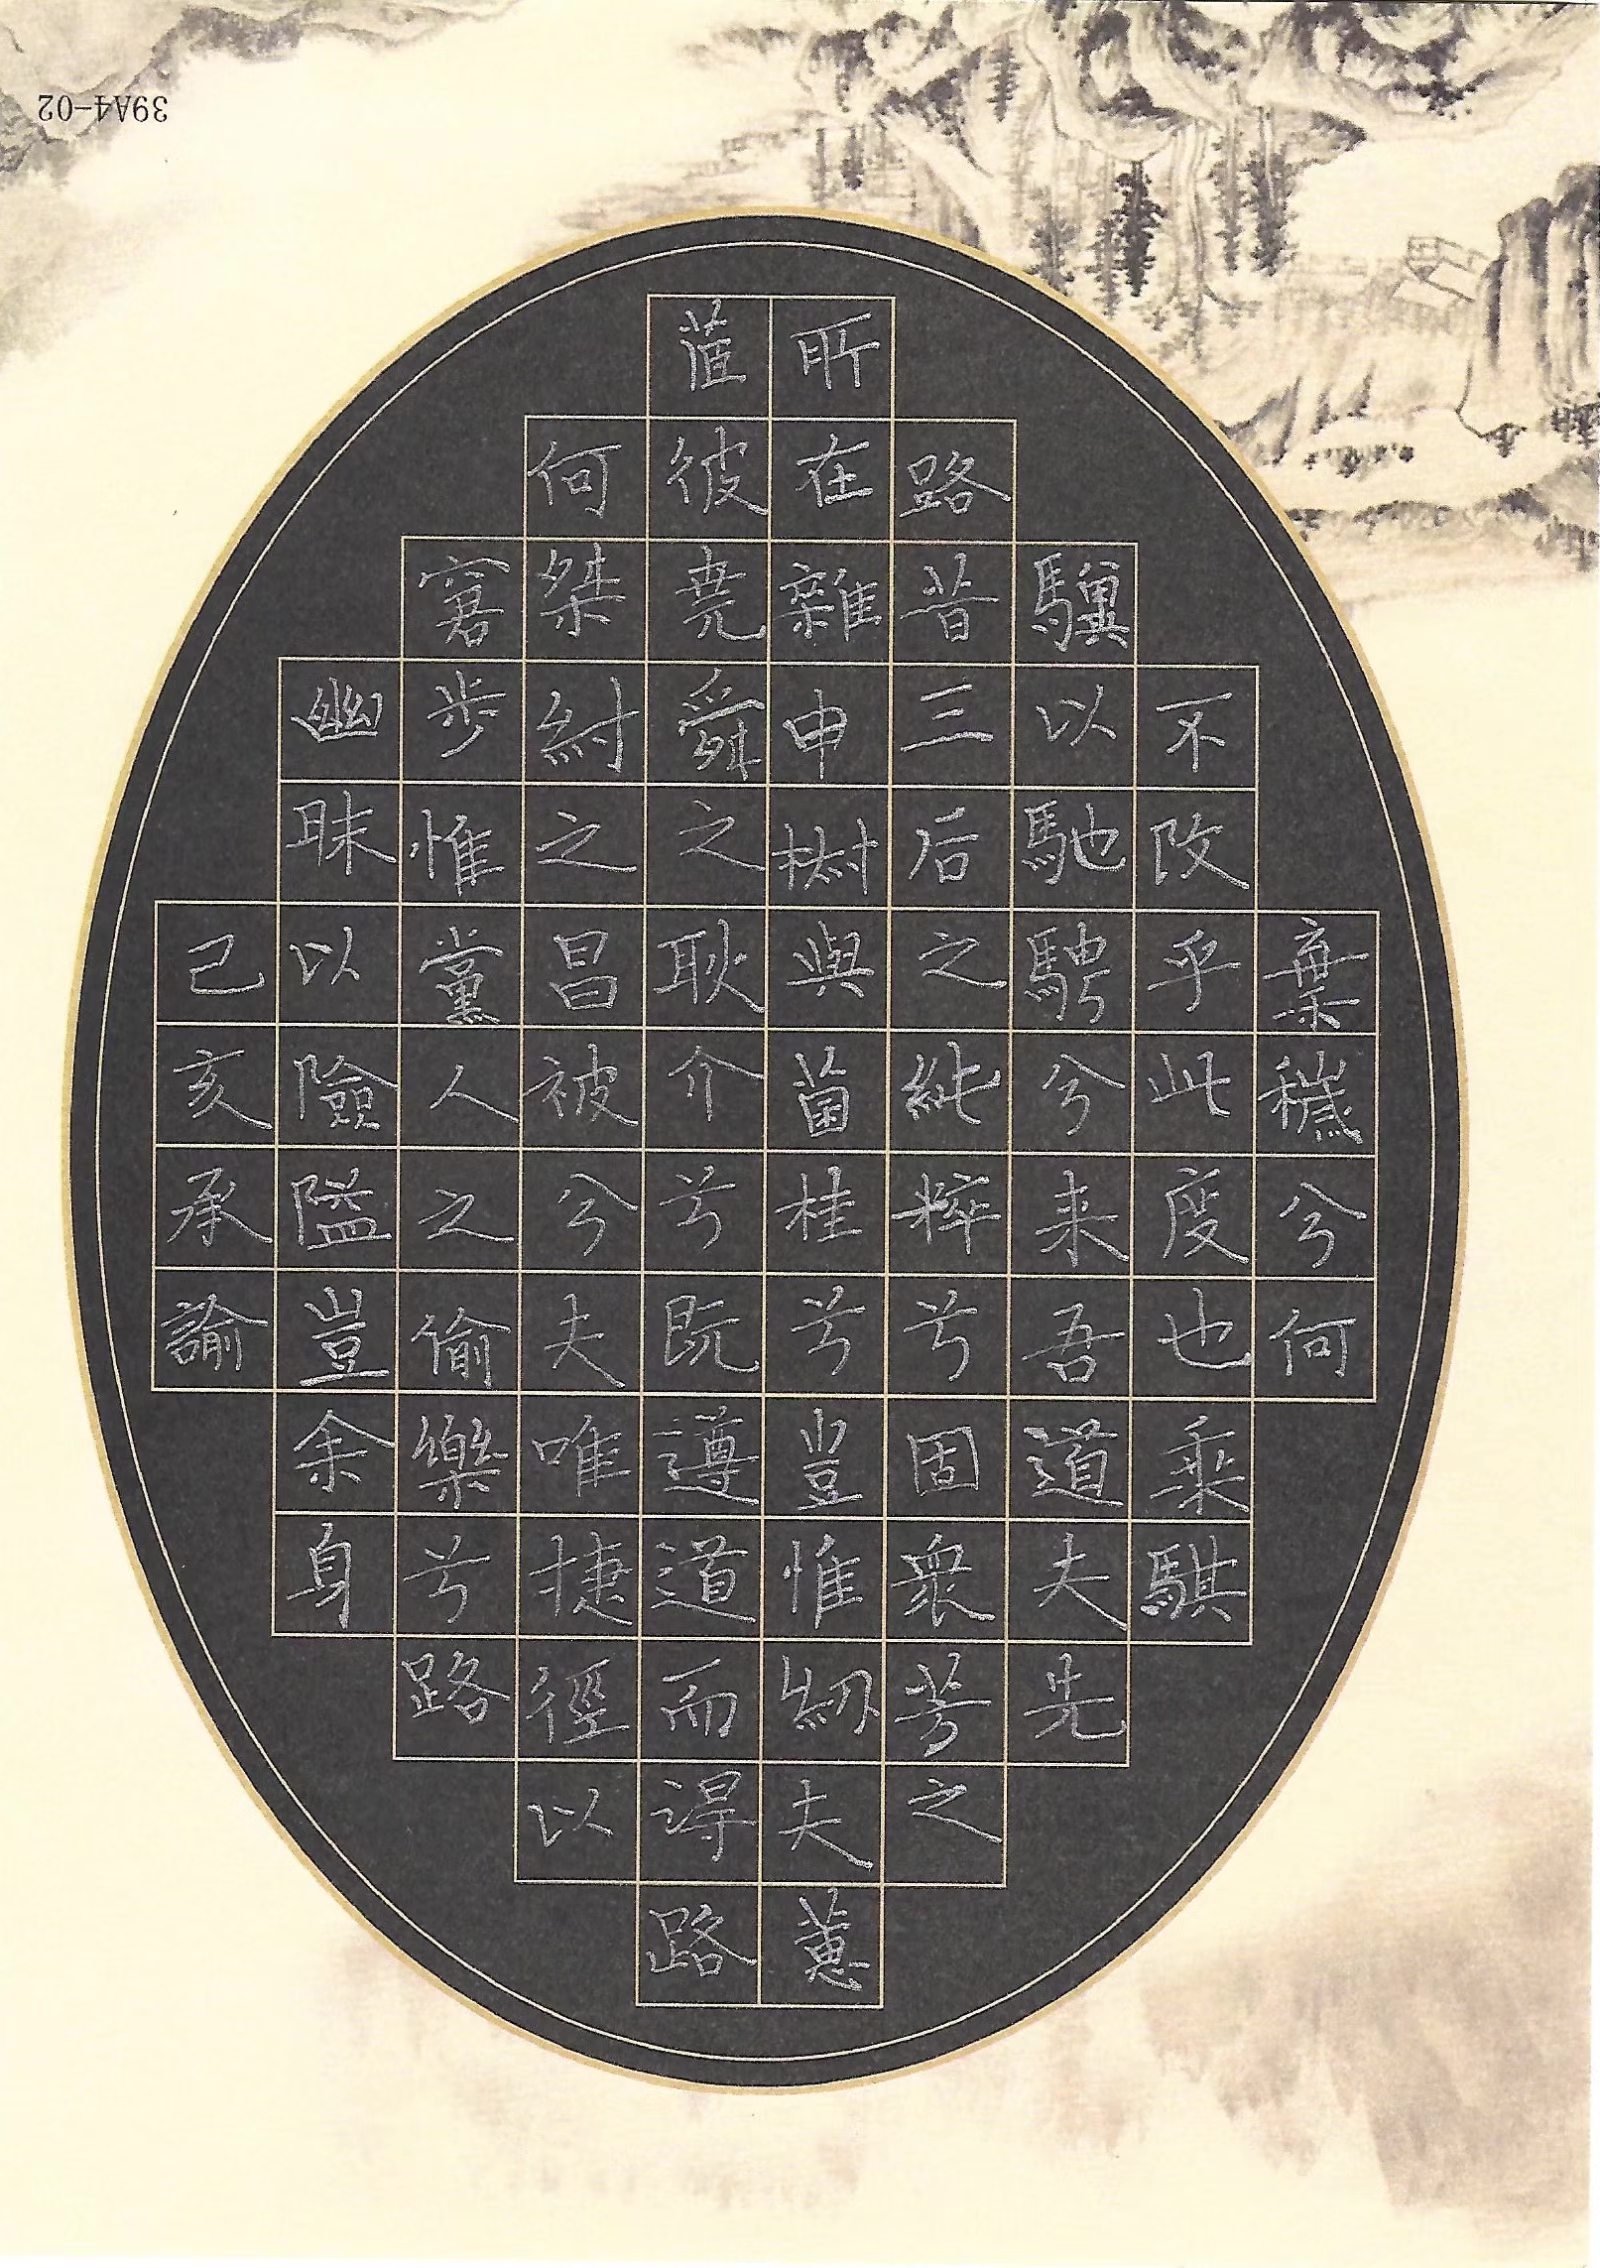 39A4-02
棄穢兮何
不改乎此度也乘騏
驥以馳騁兮来吾道夫先
路昔三后之純粹兮固衆芳之
所在雜申椒與菌桂兮豈惟紉夫蕙
茝彼堯舜之耿介兮既遵道而得路
何桀紂之昌被兮夫唯捷徑以
窘步惟黨人之偷樂兮路
幽昧以險隘豈余身
己亥承諭